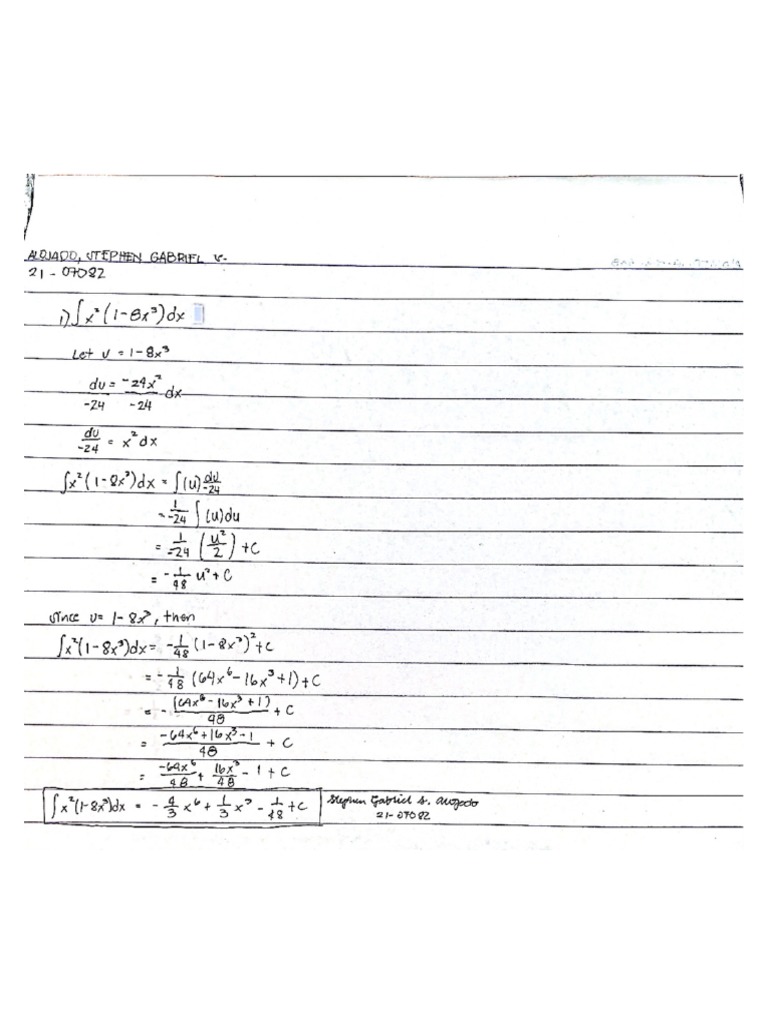 ALOJADO, STEPHEN GABRIEL S.
21 - 07082
1) ∫x²(1-8x³)dx
Let u = 1-8x³
du = -24x² dx
-24 -24
du/-24 = x²dx
∫x²(1-8x³)dx = ∫(u) du/-24
= 1/-24 ∫(u)du
= 1/-24 (u²/2) + C
= -1/48 u² + C
since u = 1-8x³, then
∫x²(1-8x³)dx = -1/48 (1-8x³)² + C
= -1/48 (64x⁶ - 16x³ + 1) + C
= -(64x⁶ - 16x³ + 1)/48 + C
= -64x⁶ + 16x³ - 1/48 + C
= -64x⁶/48 + 16x³/48 - 1 + C
∫x²(1-8x³)dx = -4/3 x⁶ + 1/3 x³ - 1/48 + C
Stephen Gabriel S. Alojado
21-07082